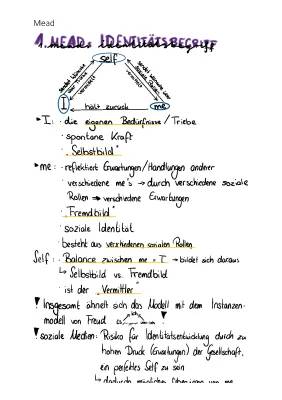 Mead
1. MEADS IDENTITÄTSBEGRIFF
self
sendet Wünsche
vermittelt
vermittelt
I
hält zurück
me
I: · die eigenen Bedürfnisse / Triebe
· spontane Kraft
· „Selbstbild"
me: · reflektiert Erwartungen/Handlungen anderer
verschiedene me's → durch verschiedene soziale
Rollen → verschiedene Erwartungen
· „Fremdbild"
· soziale Identität
· besteht aus verschiedenen sozialen Rollen
Self: · Balance zwischen me + I → bildet sich daraus
↳ Selbstbild vs. Fremdbild
· ist der „Vermittler"
! Insgesamt ähnelt sich das Modell mit dem Instanzen-
modell von Freud
! soziale Medien: Risiko für Identitätsentwicklung durch zu
hohen Druck (Erwartungen) der Gesellschaft,
ein perfektes Self zu sein